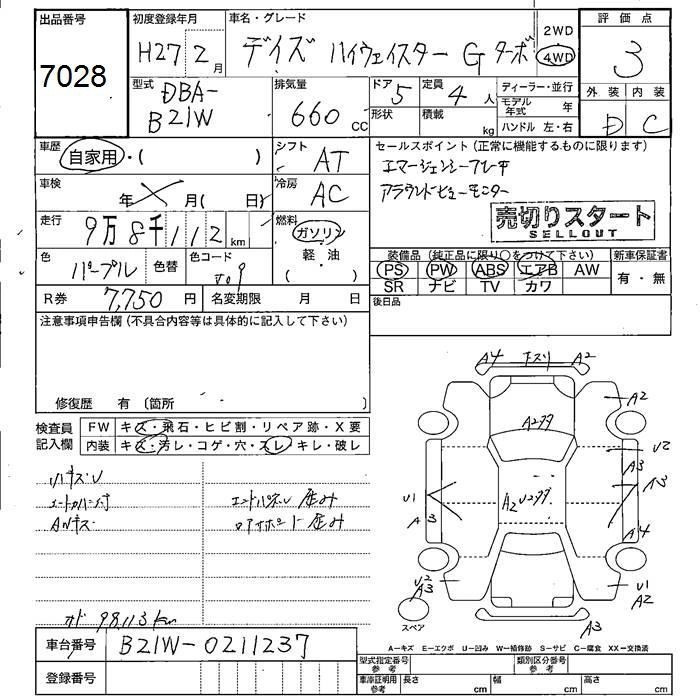 出品番号 初度登録年月 車名・グレード 2WD 評価点
7028 H27 2月 デイズ ハイウェイスター G ターボ 4WD 3
型式 DBA-B21W 排気量 660 cc ドア 5 定員 4人 ディーラー・並行 外装 内装
形状 積載 kg モデル年式 年 D C
ハンドル 左・右
車歴 自家用・( ) シフト AT セールスポイント (正常に機能するものに限ります)
エマージェンシーブレーキ
車検 年 月( 日) 冷房 AC アラウンドビューモニター
走行 9万8千112km 燃料 ガソリン 売切りスタート
SELLOUT
軽・油
( )
色 パープル 色替 色コード 装備品 (純正品に限り○をつけて下さい) 新車保証書
PS PW ABS エアB AW 有・無
SR ナビ TV カワ
R券 7,750円 名変期限 月 日 後日品
注意事項申告欄 (不具合内容等は具体的に記入して下さい)
修復歴 有 〔箇所 〕
検査員記入欄 FW キズ・飛石・ヒビ割・リペア跡・X要
内装 キズ・汚レ・コゲ・穴・スレ・キレ・破レ
A4 キズリ A2
A2
A2
U2
A3
A3
U1
A3
A4
U2
A3
U1
A2
A3
スペア
ハキズU
Aルキズ
エンドパネル 歪み
オド 98113km
車台番号 B21W-0211237
登録番号
A-キズ E-エクボ U-凹み W-補修跡 S-サビ C-腐食 XX-交換済
型式指定番号 参考 類別区分番号 参考
車庫証明用 参考 長さ cm 幅 cm 高さ cm